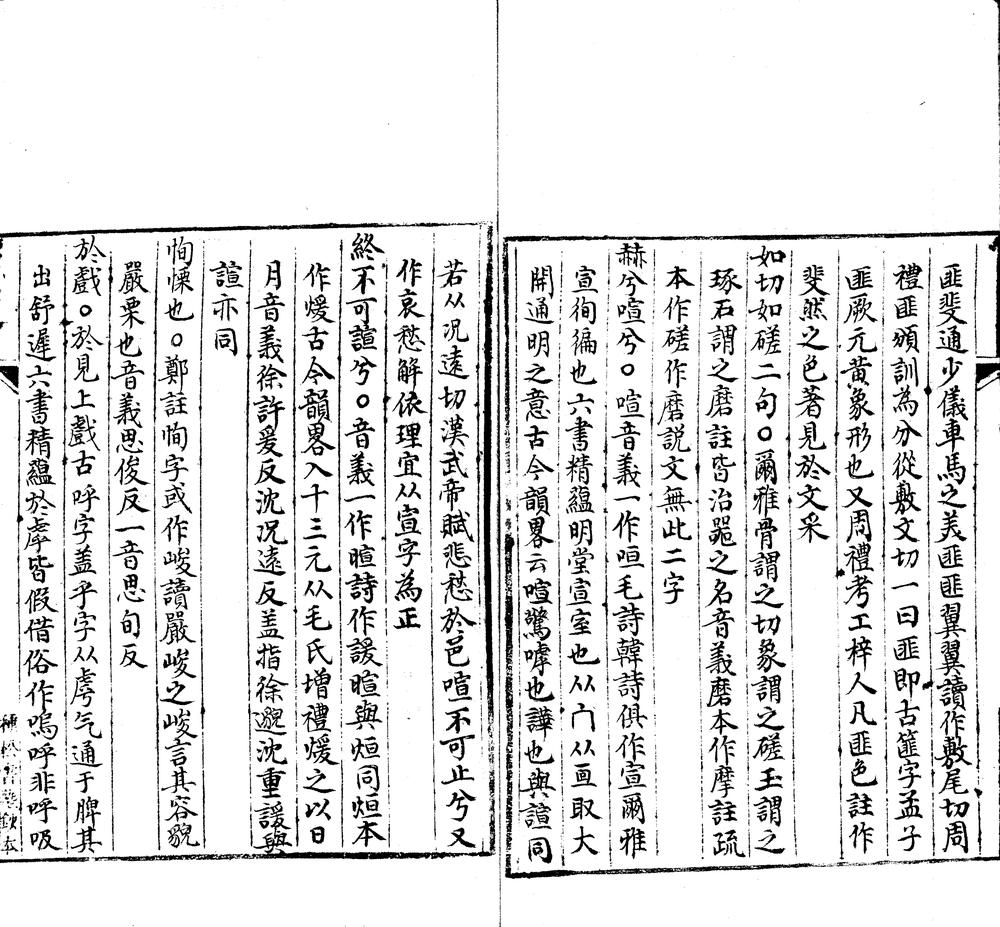 匪斐通少儀車馬之美匪匪翼翼讀作敷尾切周
禮匪頒訓為分從敷文切一曰匪即古篚字孟子
匪厥元黃象形也又周禮考工梓人凡匪色註作
斐然之色著見於文采
如切如磋二句○爾雅骨謂之切象謂之磋玉謂之
琢石謂之磨註皆治噐之名音義磨本作摩註疏
本作磋作磨説文無此二字
赫兮喧兮○喧音義一作咺毛詩韓詩俱作宣爾雅
宣徇徧也六書精蘊明堂宣室也从冂从亘取大
開通明之意古今韻畧云喧驚嘑也譁也與諠同
若从况遠切漢武帝賦悲愁於邑喧不可止兮又
作哀愁解依理宜从宣字為正
終不可諠兮○音義一作暄詩作諼暄與烜同烜本
作煖古今韻畧入十三元从毛氏增禮煖之以日
月音義徐許爰反沈况遠反盖指徐邈沈重諼與
諠亦同
恂慄也○鄭註恂字或作峻讀嚴峻之峻言其容貌
嚴栗也音義思俊反一音思旬反
於戲○於見上戲古呼字盖乎字从虍气通于脾其
出舒遲六書精蘊於虖皆假借俗作嗚呼非呼吸
種松書塾鈔本